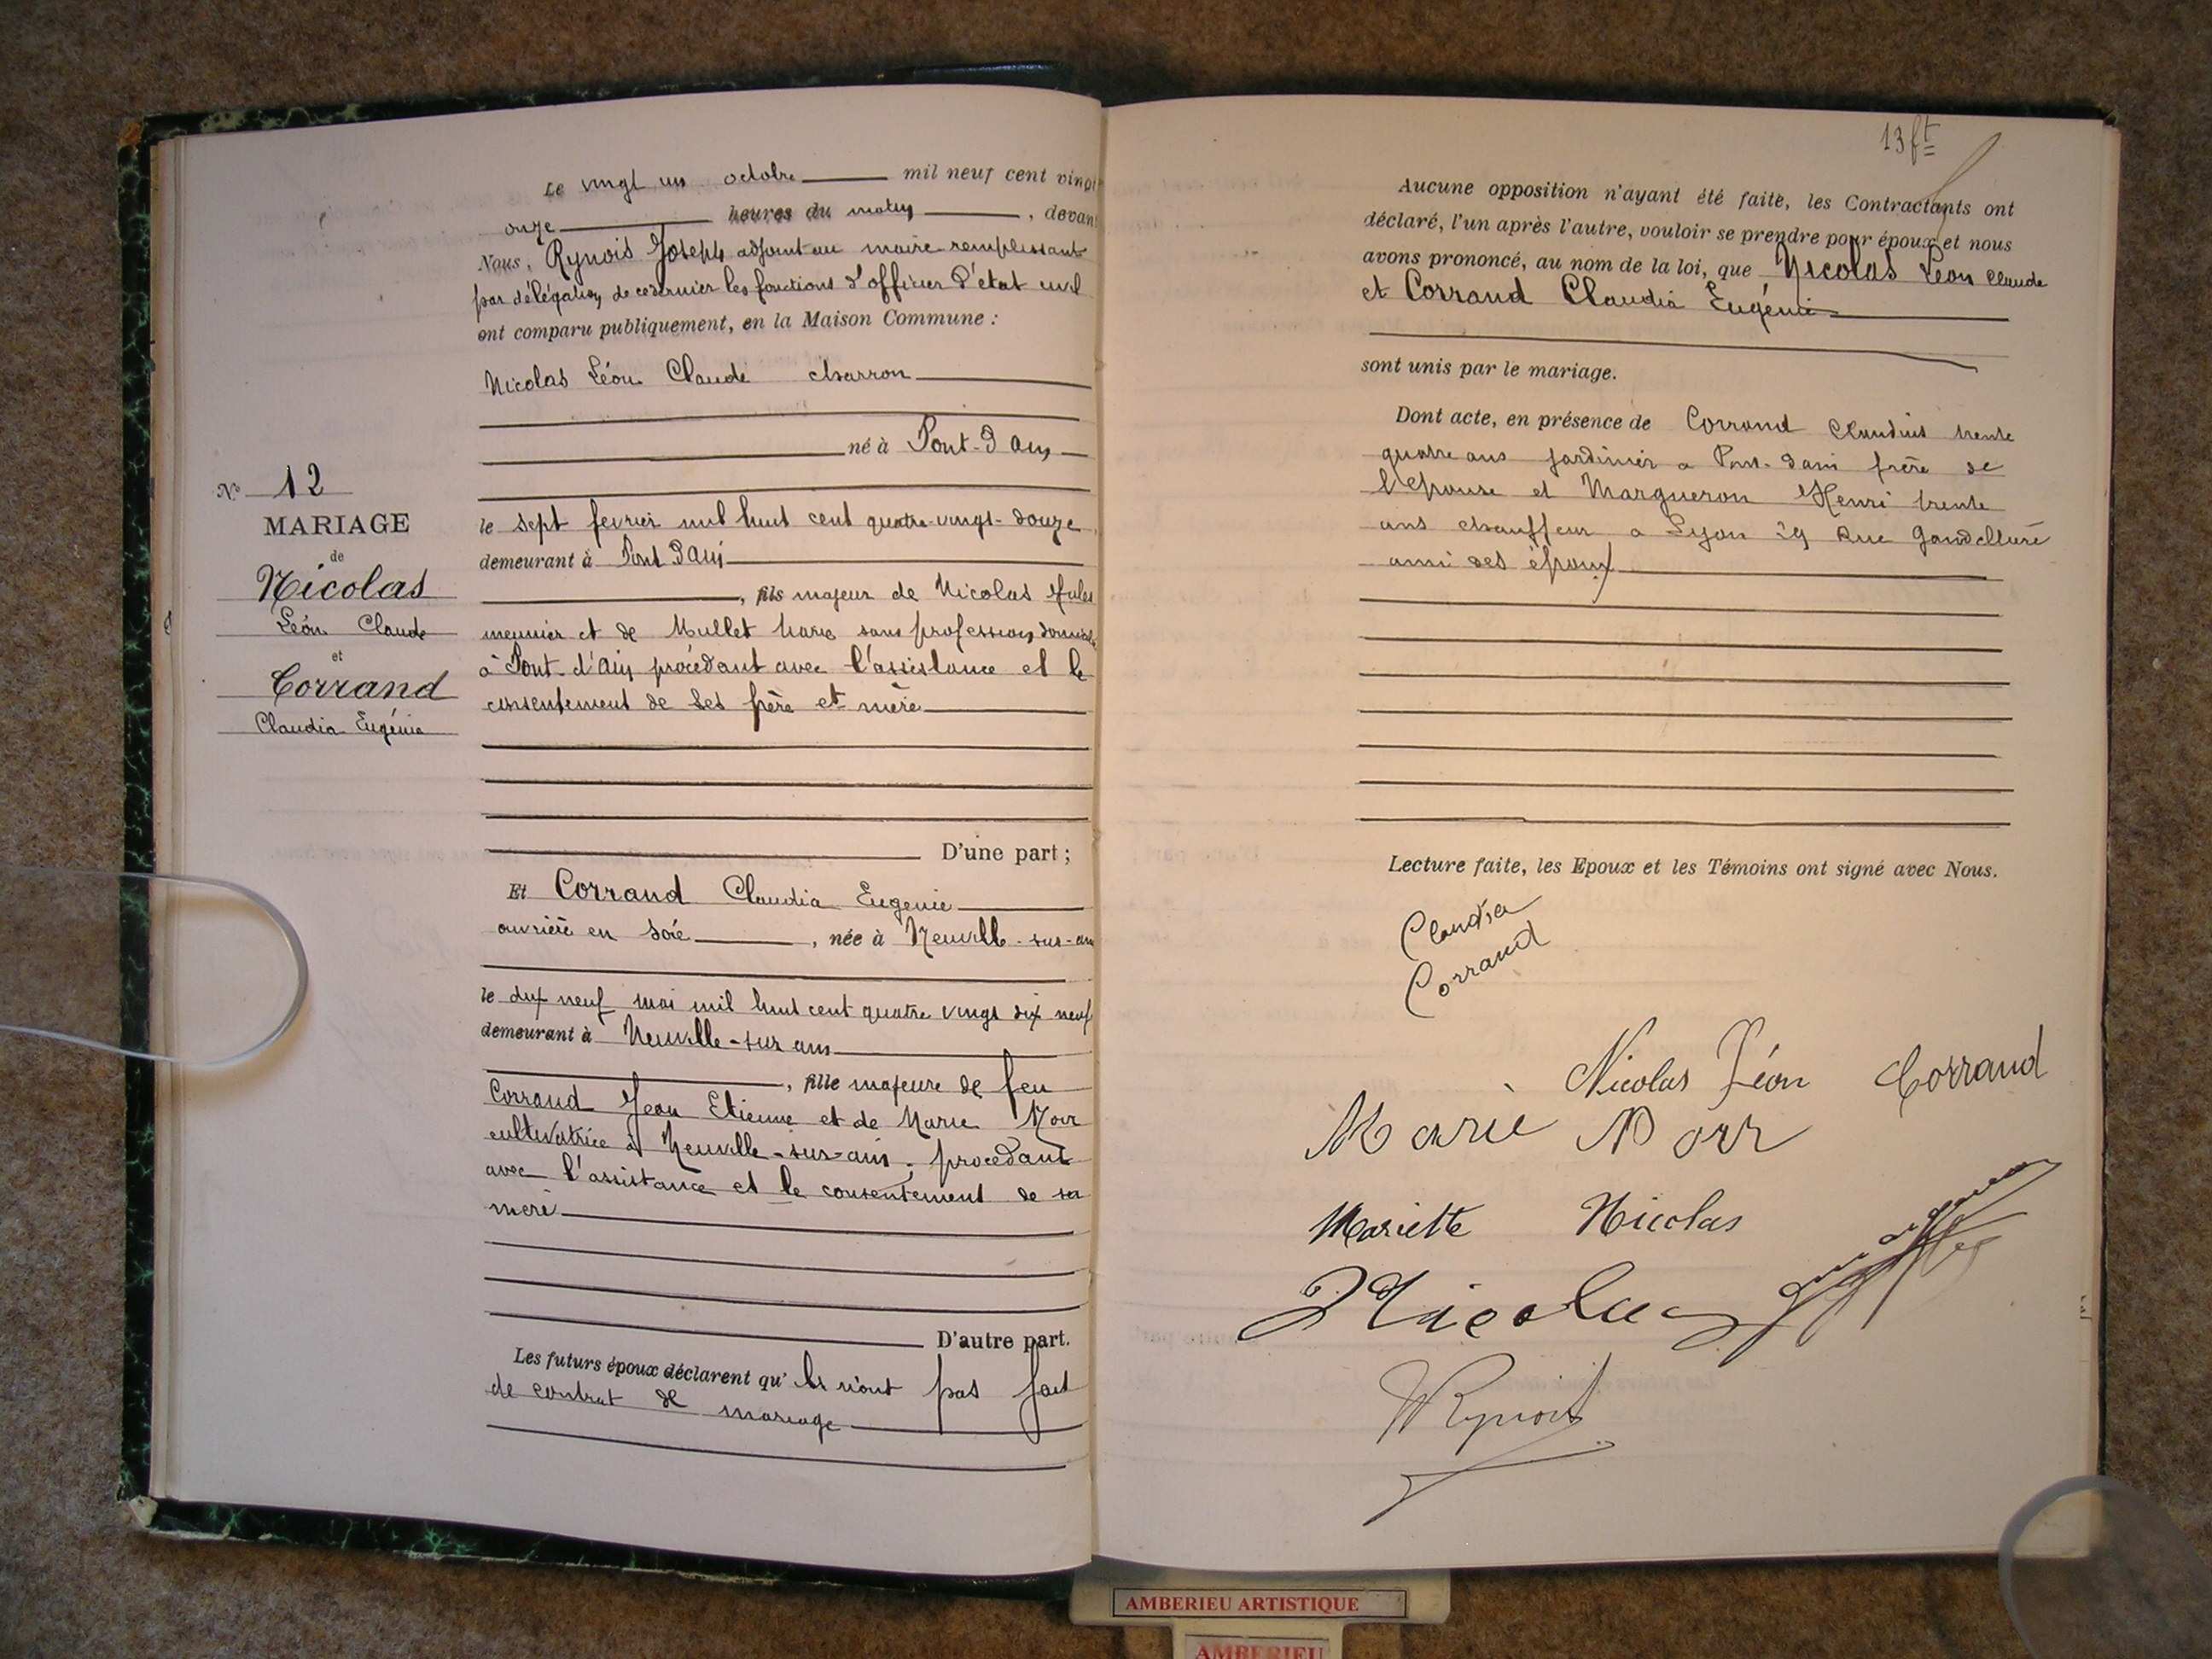 Le vingt un octobre mil neuf cent vingt
onze heures du matin, devant
Nous, Rynois Joseph adjoint au maire remplissant
par délégation de ce dernier les fonctions d'officier d'état civil
ont comparu publiquement, en la Maison Commune :
Nicolas Léon Claude charron
né à Pont-d'Ain
le sept fevrier mil huit cent quatre-vingt-douze
demeurant à Pont d'Ain
, fils majeur de Nicolas Jules
meunier et de Mullet Marie sans profession
à Pont-d'Ain procédant avec l'assistance et le
consentement de ses père et mère
D'une part ;
N° 12
MARIAGE
de
Nicolas
Léon Claude
et
Corrand
Claudia Eugénie
Et Corrand Claudia Eugenie
ouvrière en soie, née à Neuville-sur-ain
le dix neuf mai mil huit cent quatre vingt dix neuf
demeurant à Neuville-sur ain
, fille majeure de feu
Corrand Jean Etienne et de Marie
cultivatrice à Neuville-sur-ain, procédant
avec l'assistance et le consentement de sa
mère
D'autre part.
Les futurs époux déclarent qu'ils n'ont pas fait
de contrat de mariage
13 ft
Aucune opposition n'ayant été faite, les Contractants ont
déclaré, l'un après l'autre, vouloir se prendre pour époux et nous
avons prononcé, au nom de la loi, que Nicolas Léon Claude
et Corrand Claudia Eugénie
sont unis par le mariage.
Dont acte, en présence de Corrand Claudius trente
quatre ans jardinier a Pont-d'ain frère de
l'épouse et Margueron Henri trente
ans chauffeur a Lyon 29 Rue
ami des époux
Lecture faite, les Epoux et les Témoins ont signé avec Nous.
Claudia
Corrand
Nicolas Léon Corrand
Marie
Mariette Nicolas
Nicolas
Rynois
AMBERIEU ARTISTIQUE
AMBERIEU